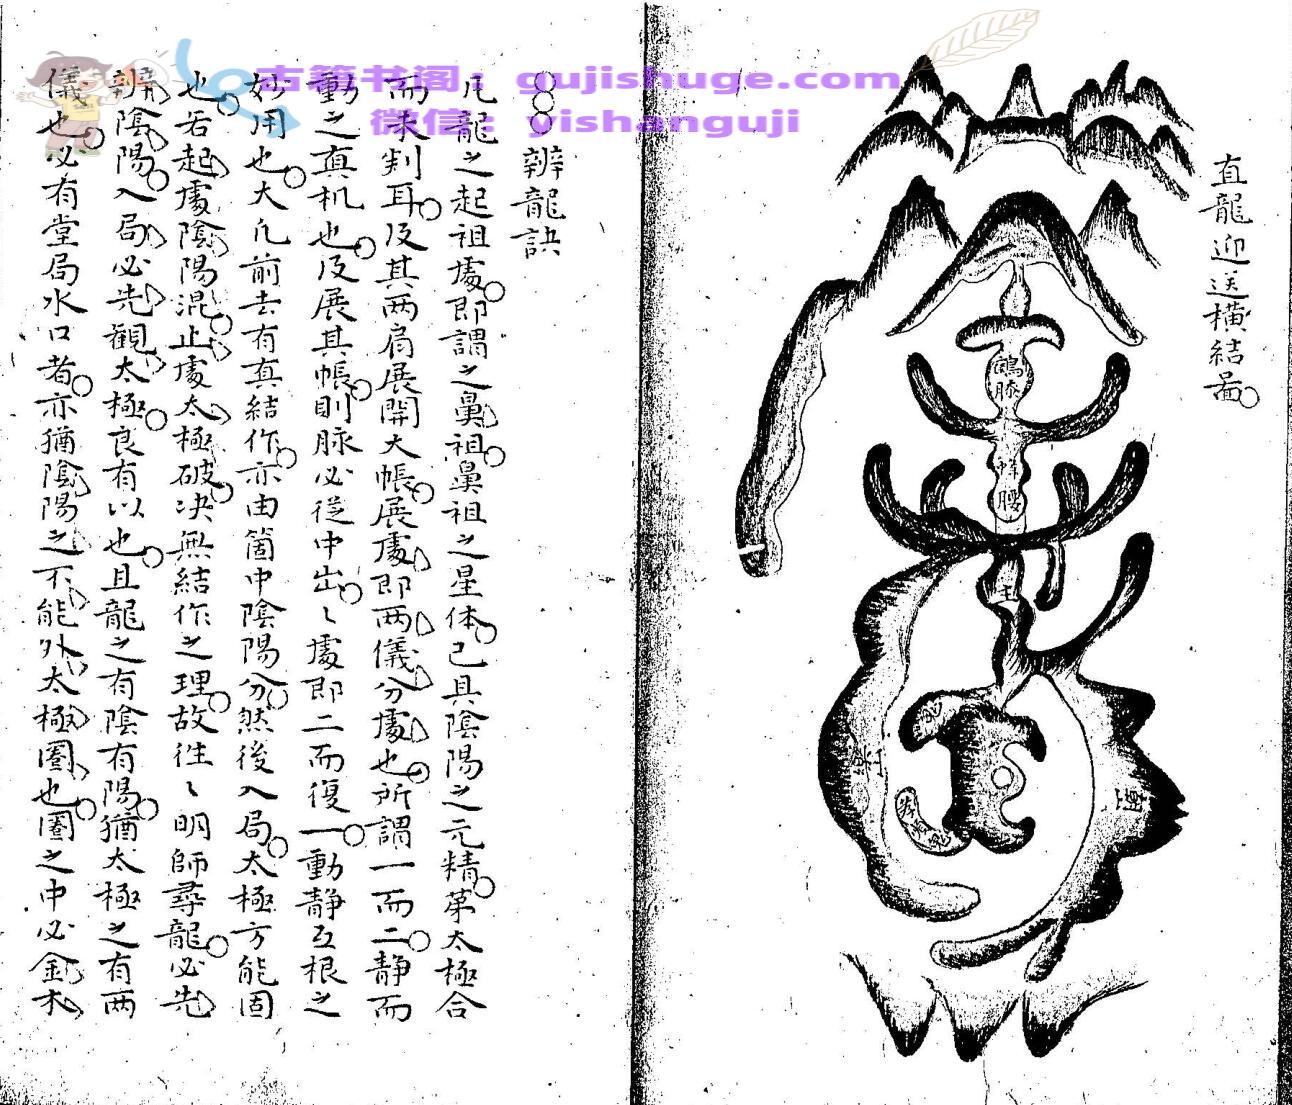 直龍迎送橫結啚
鶴膝
蜂腰
主
鬼
朝
辨龍訣
凡龍之起祖處即謂之鼻祖鼻祖之星体已具陰陽之元精第太極合
而未判耳及其两扃展開大帳展處即两儀分處也所謂一而二静而
動之真机也及展其帳則脉必從中出〻處即二而復一動静互根之
妙用也大凡前去有真結作亦由箇中陰陽分然後入局太極方能固
也若起處陰陽混止處太極破决無結作之理故徃〻明師尋龍必先
辨陰陽入局必先觀太極良有以也且龍之有陰有陽猶太極之有两
儀也必有堂局水口者亦猶陰陽之不能外太極圏也圏之中必金木
古籍书阁：gujishuge.com
微信：yishanguji